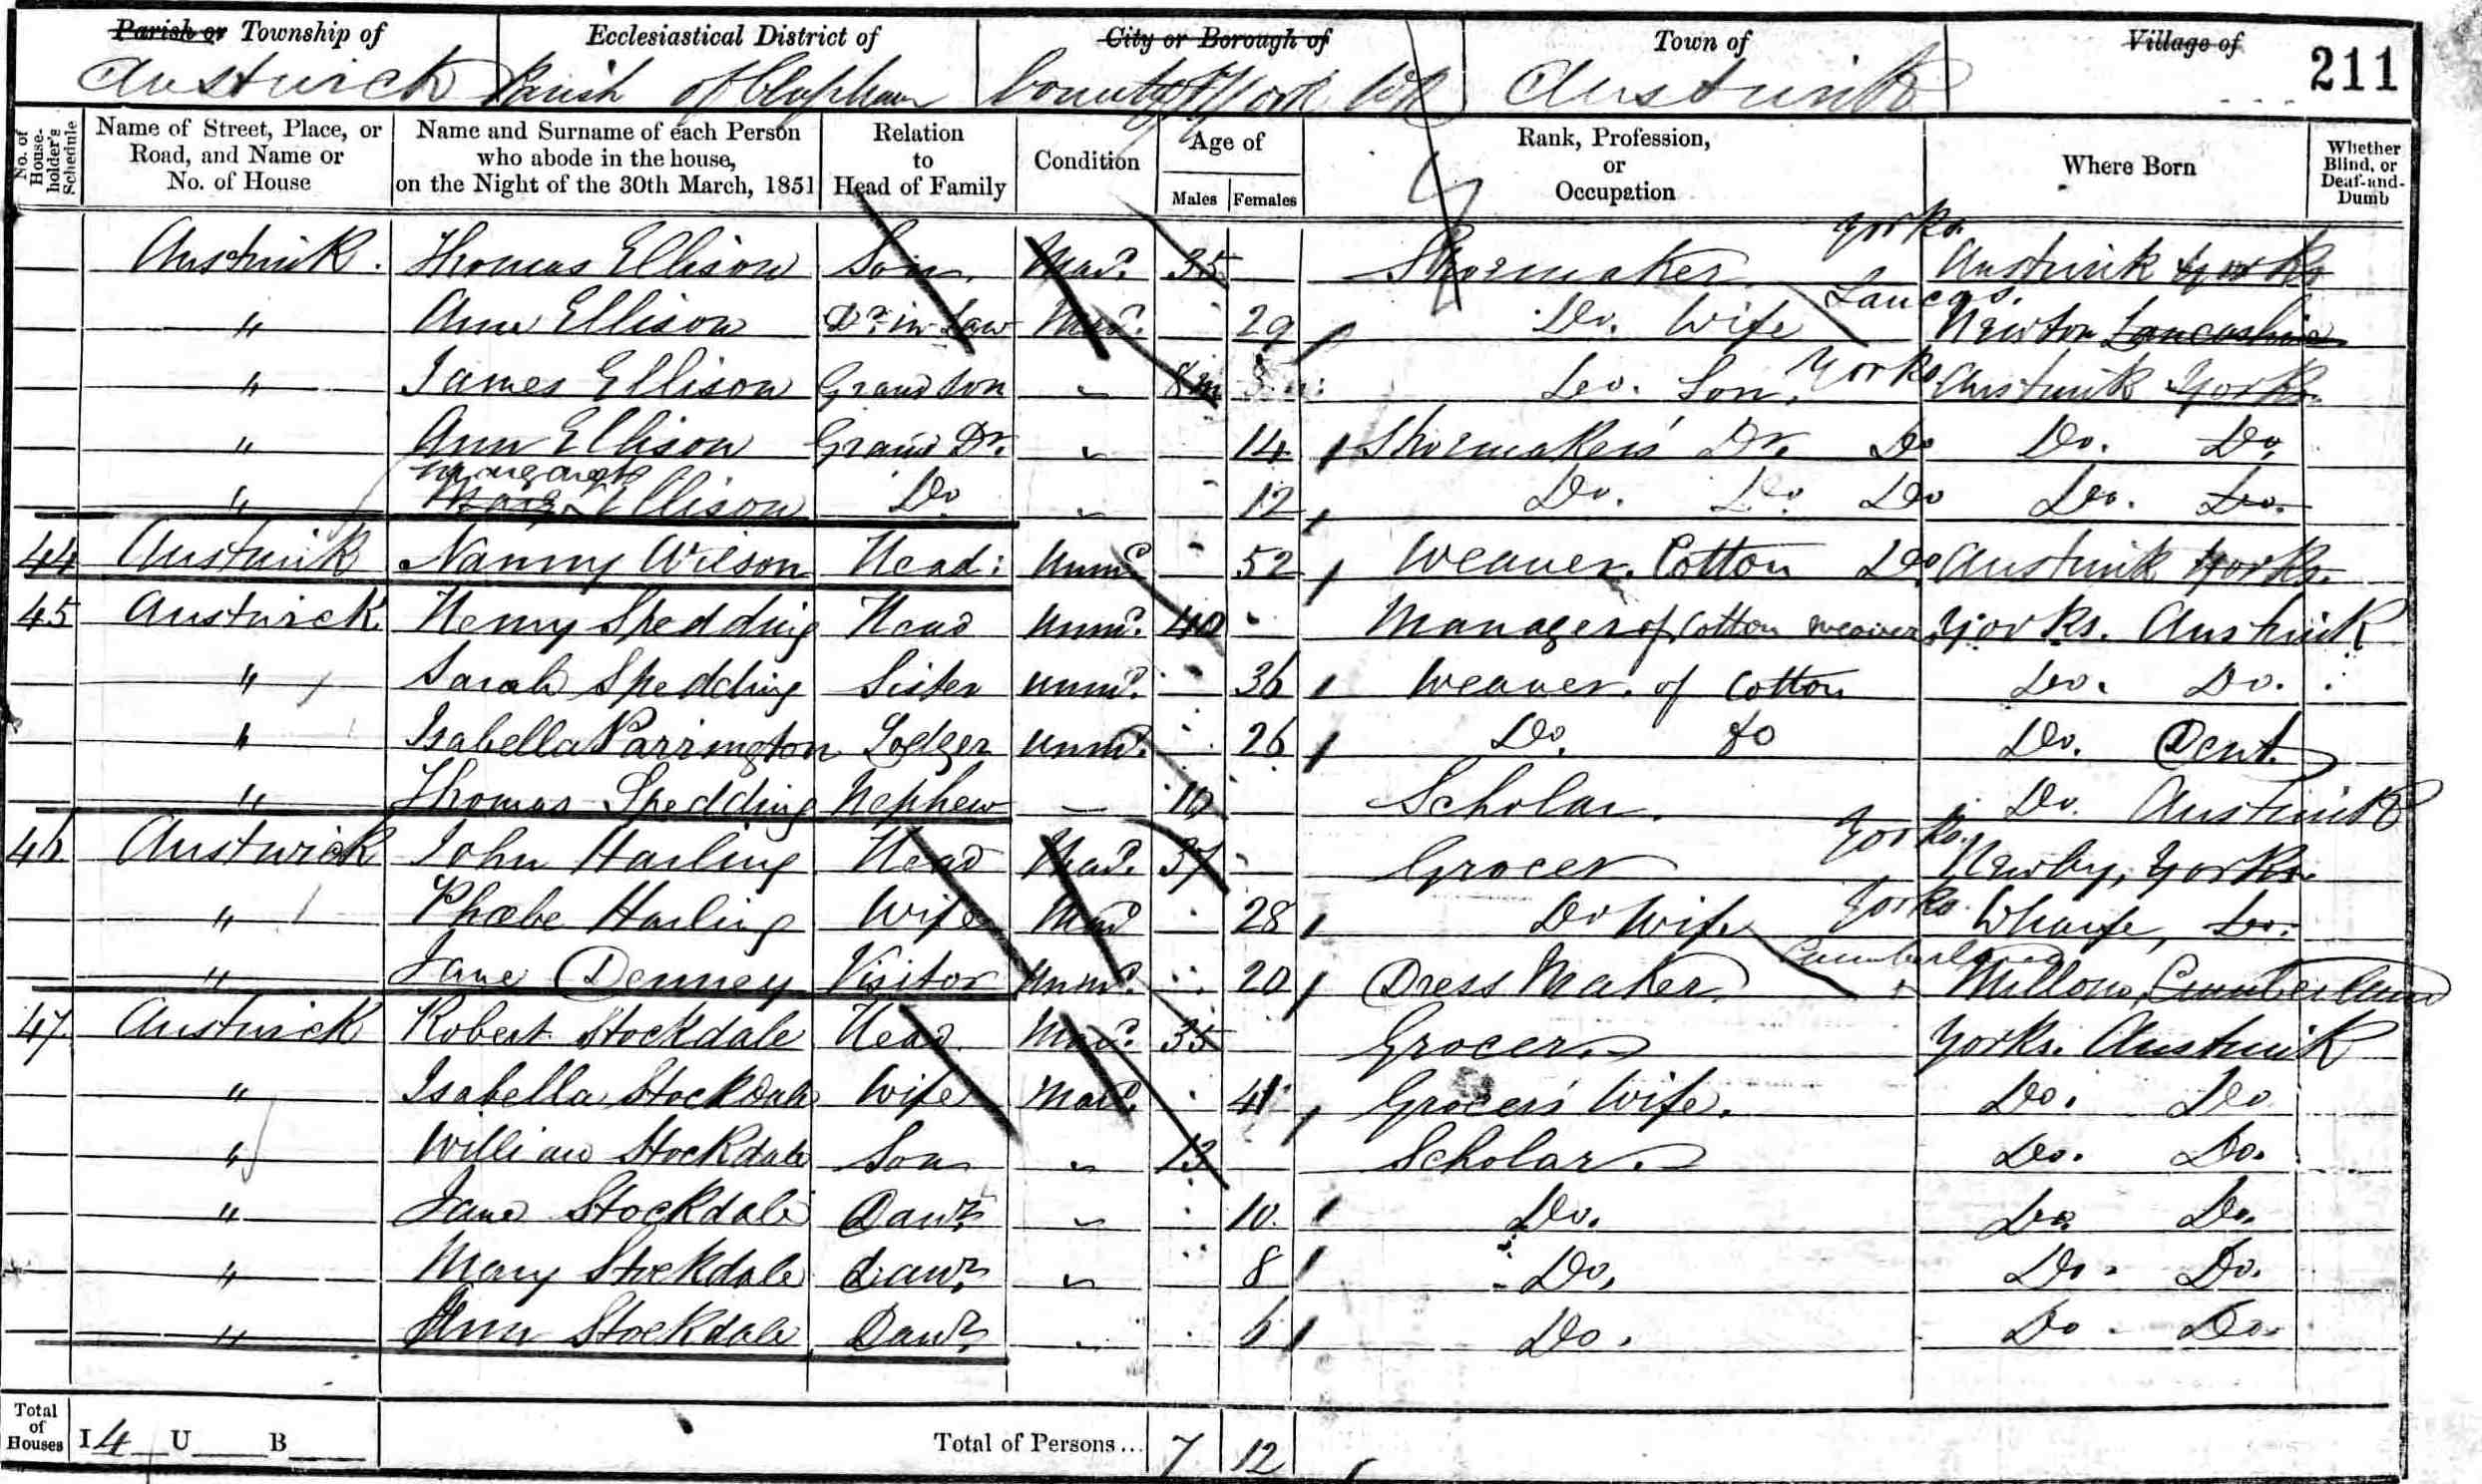 Parish or Township of Ecclesiastical District of City or Borough of Town of Village of 211
Austwick Parish of Clapham County of York WR Austwick
No. of House-holder's Schedule Name of Street, Place, or Road, and Name or No. of House Name and Surname of each Person who abode in the house, on the Night of the 30th March, 1851 Relation to Head of Family Condition Age of Males Females Rank, Profession, or Occupation Where Born Whether Blind, or Deaf-and-Dumb
Austwick. Thomas Ellison Son. Mard. 35 Shoemaker Yorks. Austwick Yorks
" Ann Ellison Dr. in Law Mard. 29 Do. Wife Lancas. Newton Lancashire
" James Ellison Grand son 8m Do. Son. Yorks Austwick Yorks.
" Ann Ellison Grand Dr. 14 Shoemaker's Dr. Do Do. Do.
" Margaret Mary Ellison Do 12 Do. Do Do Do. Do.
44 Austwick Nanny Wilson Head: Unmd. 52 Weaver. Cotton Do. Austwick Yorks.
45 Austwick Henry Spedding Head Unmd. 40 Manager of Cotton weavers Yorks. Austwick
" Sarah Spedding Sister Unmd. 36 Weaver. of Cotton Do. Do.
" Isabella Parrington Lodger Unmd. 26 Do. do Do. Dent.
" Thomas Spedding Nephew — 10 Scholar. Do. Austwick
46 Austwick John Harling Head Mard. 37 Grocer Yorks. Newby, Yorks.
" Phœbe Harling Wife Mard 28 Do Wife Yorks. Wharfe, Do.
" Jane Denney Visitor Unmd. 20 Dress Maker Cumberland Millom, Cumberland
47 Austwick Robert Stockdale Head Mard. 35 Grocer. Yorks. Austwick
" Isabella Stockdale Wife Mard. 41 Grocer's Wife. Do. Do
" William Stockdale Son 13 Scholar. Do. Do.
" Jane Stockdale Dawr. 10. Do. Do. Do.
" Mary Stockdale Dawr. 8 Do. Do. Do.
" Ann Stockdale Dawr. 6 Do. Do. Do.
Total of Houses I 4 U B Total of Persons... 7 12